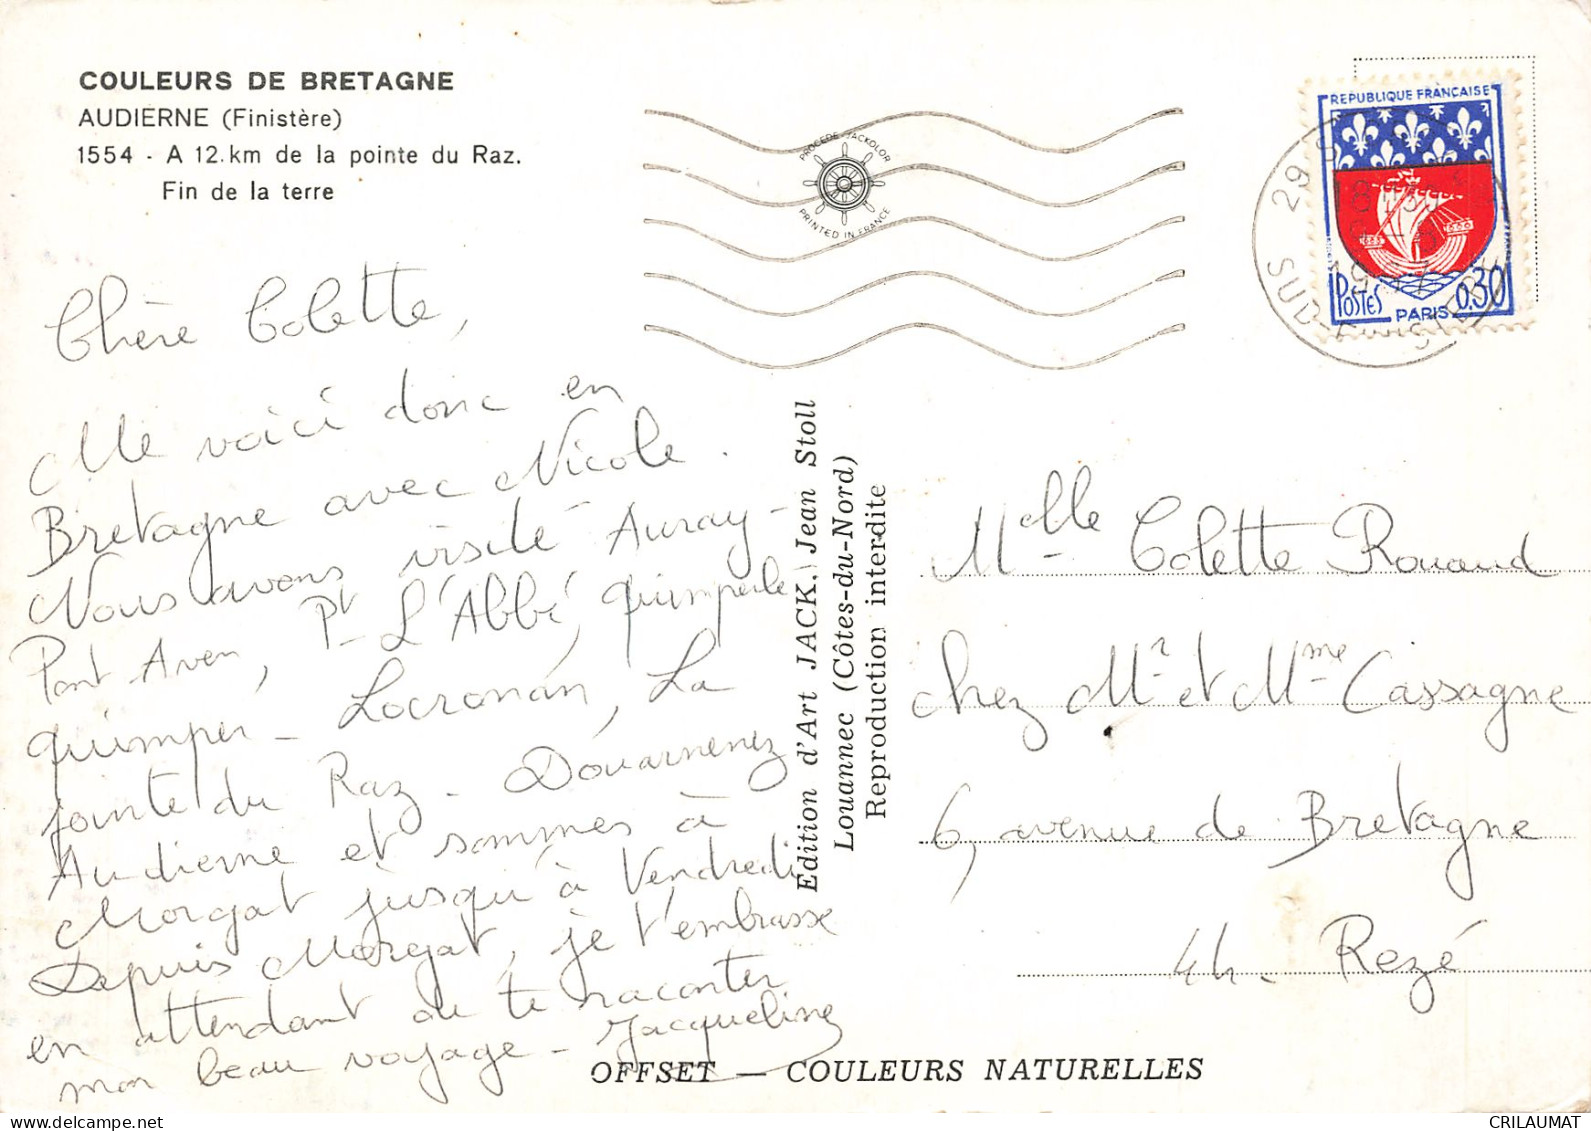 COULEURS DE BRETAGNE
AUDIERNE (Finistère)
1554 - A 12.km de la pointe du Raz.
Fin de la terre
Chère Colette,
Me voici donc en
Bretagne avec Nicole.
Nous avons visité Auray -
Pont Aven, Pt L'Abbé, Quimperlé
Quimper - Locronan, La
pointe du Raz - Douarnenez
Audierne et sommes à
Morgat jusqu'à Vendredi
Depuis Morgat, je t'embrasse
en attendant de te raconter
mon beau voyage - Jacqueline
PROCEDE JACKOLOR
PRINTED IN FRANCE
REPUBLIQUE FRANÇAISE
POSTES
PARIS
0,30
29
SUD-FINISTERE
Edition d'Art JACK. Jean Stoll
Louannec (Côtes-du-Nord)
Reproduction interdite
Melle Colette Rouaud
chez Mr et Mme Cassagne
6, avenue de Bretagne
44 - Rezé
OFFSET — COULEURS NATURELLES
CRILAUMAT